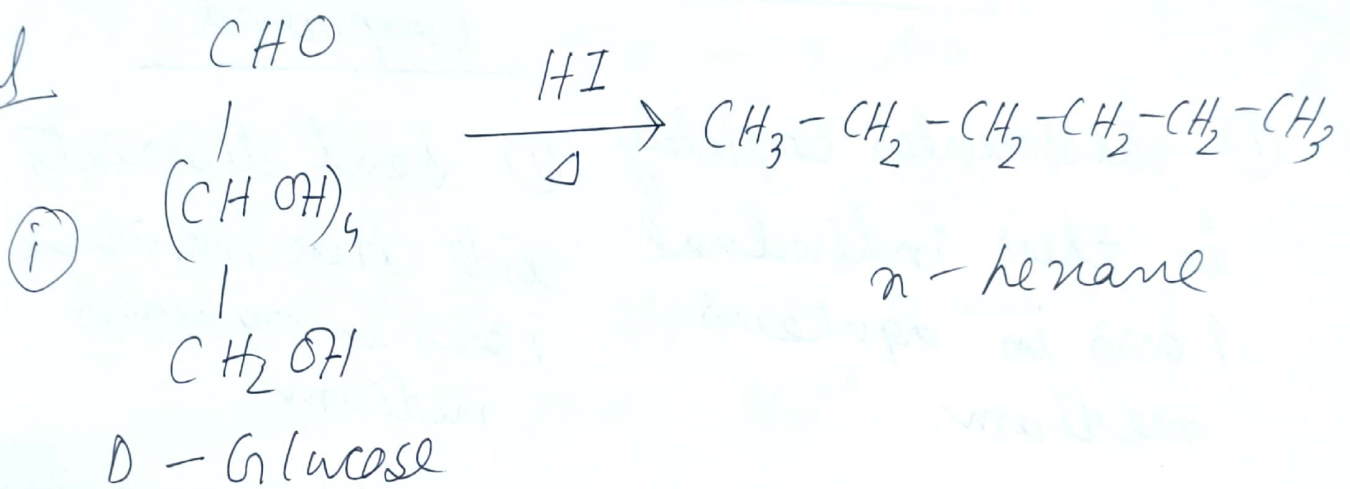 1
CHO
|
(CHOH)4
|
CH2OH
D - Glucose
HI
Δ
CH3 - CH2 - CH2 - CH2 - CH2 - CH3
n - hexane
(i)